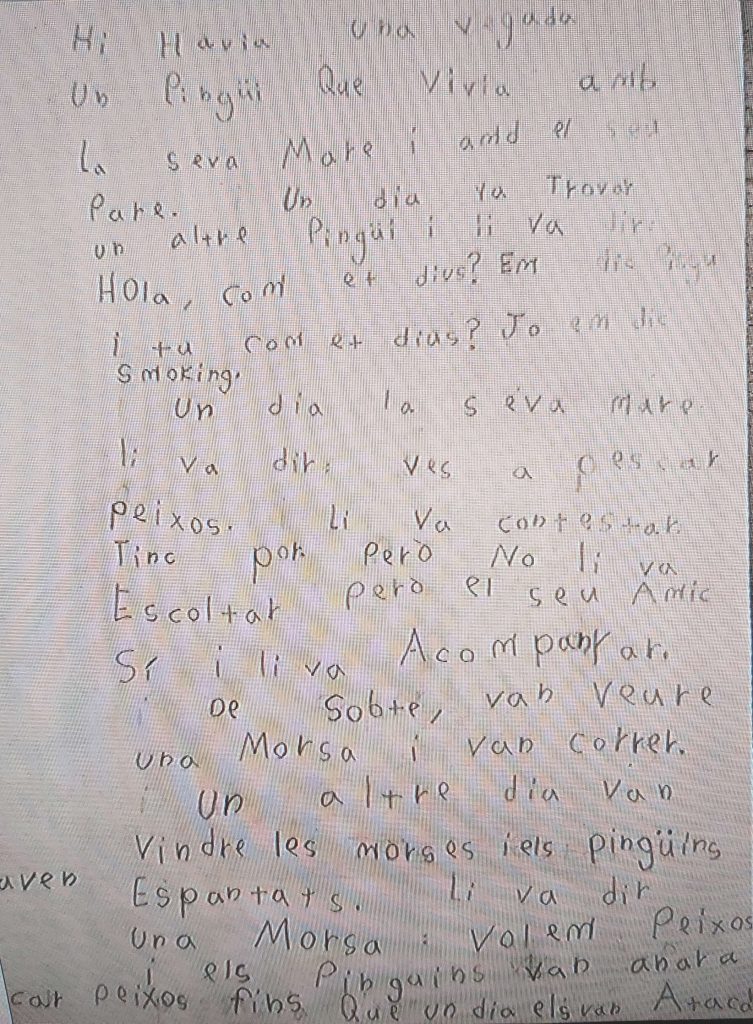 Hi Havia una vegada
Un Pingüi Que Vivia amb
la seva Mare i amd el seu
Pare. Un dia va Trovar
un altre Pingüi i li va dir:
HOla, com et dius? Em dic Pingu
i tu com et dias? Jo em dic
smoking.
Un dia la seva mare
li va dir: ves a pescar
peixos. li va contestar.
Tinc por. Però No li va
Escoltar però el seu Amic
Sí i li va Acompanyar.
i De sobte, van veure
una Morsa i van correr.
i un altre dia van
Vindre les morses i els pingüins
aven Espantats. li va dir
una Morsa: Volem Peixos
i els Pinguins van anar a
car peixos fins Que un dia els van Ataca